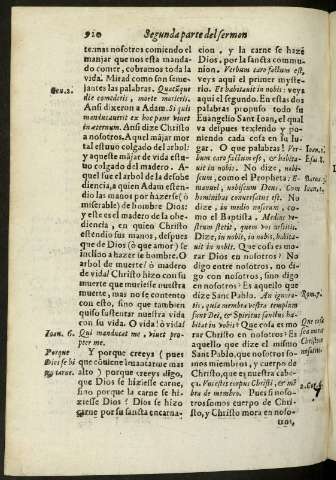 920 Segunda parte del sermon
te: mas nosotros comiendo el
manjar que nos esta manda-
do comer, cobramos toda la
vida. Mirad como son seme-
jantes las palabras. Quacũque
die comederis, morte morieris.
Ansi dixeron a Adam. Si quis
manducauerit ex hoc pane viuet
in æternum. Ansi dize Christo
a nosotros. Aquel mãjar mor
tal estuuo colgado del arbol;
y aqueste mãjar de vida estu-
uo colgado del madero. A-
quel fue el arbol de la desobe
diencia, a quien Adam esten-
dio las manos por hazerse (o
miserable) de hombre Dios:
y este es el madero de la obe-
diencia, en quien Christo
estendio sus manos, despues
que de Dios (ò que amor) se
inclino a hazerse hombre. O
arbol de muerte! ò madero
de vida! Christo hizo con su
muerte que muriesse nuestra
muerte, mas no se contento
con esso, sino que tambien
quiso sustentar nuestra vida
con su vida. O vida! ò vida!
Qui manducat me, viuet prop-
ter me.
Y porque creeys (pues
que conuiene leuantarme mas
alto) y porque creeys digo,
que Dios se hiziesse carne,
sino porque la carne se hi-
ziesse Dios? Dios se hizo
carne por su sancta encarna-
Gen. 2.
Ioan. 6.
Porque
Dios se hi
zo carne.
cion, y la carne se hazé
Dios, por la sancta commu-
nion. Verbum caro factum est,
veys aqui el primer myste-
rio. Et habitauit in nobis: veys
aqui el segundo. En estas dos
palabras propuso todo su
Euangelio Sant Ioan, el qual
va despues texiendo y po-
niendo cada cosa en su lu-
gar. O que palabras! Ver-
bum caro factum est, & habita-
uit in nobis. No dize, nobis-
cum, como el Propheta: E-
manuel, nobiscum Deus. Cum
hominibus conuersatus est. No
dize, in medio vestrum, como
el Baptista. Medius ve-
strum stetit, quem vos nescitis.
Dize, in nobis, in nobis, habita-
uit in nobis. Que cosa es mo-
rar Dios en nosotros? No
digo entre nosotros, no di-
go con nosotros, sino digo
en nosotros? Es aquello que
dize Sant Pablo. An ignora-
tis, quia membra vestra templum
sunt Dei, & Spiritus sanctus ha-
bitat in vobis? Que cosa es mo
rar Christo en nosotros? Es
aquello que dize el mismo
Sant Pablo, que nosotros so-
mos miembros, y cuerpo de
Christo, que es nuestra cabe-
ça. Vos estis corpus Christi, & mẽ
bra de membro. Pues si noso-
tros somos cuerpo de Chri-
sto, y Christo mora en noso-
tros,
Ioan. 1.
Rom.
Que cosa
sea morar
Christo en
nosotros.